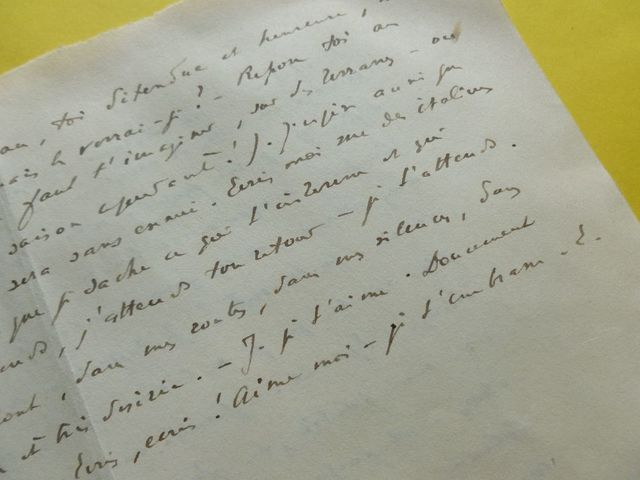 toi détendue et heureuse,
la verrai-je ? - Repose toi au
faut t'imaginer, sur des terrasses - ou
saison cependant ! J. J'espère aussi que
sera sans ennui. Ecris moi me des italiens
que je sache ce qui t'intéresse et qui
j'attends ton retour - je t'attends.
dans mes routes, dans mes silences, dans
et très désirée. - J. je t'aime. Doucement
Ecris, écris ! Aime moi - je t'embrasse. E.